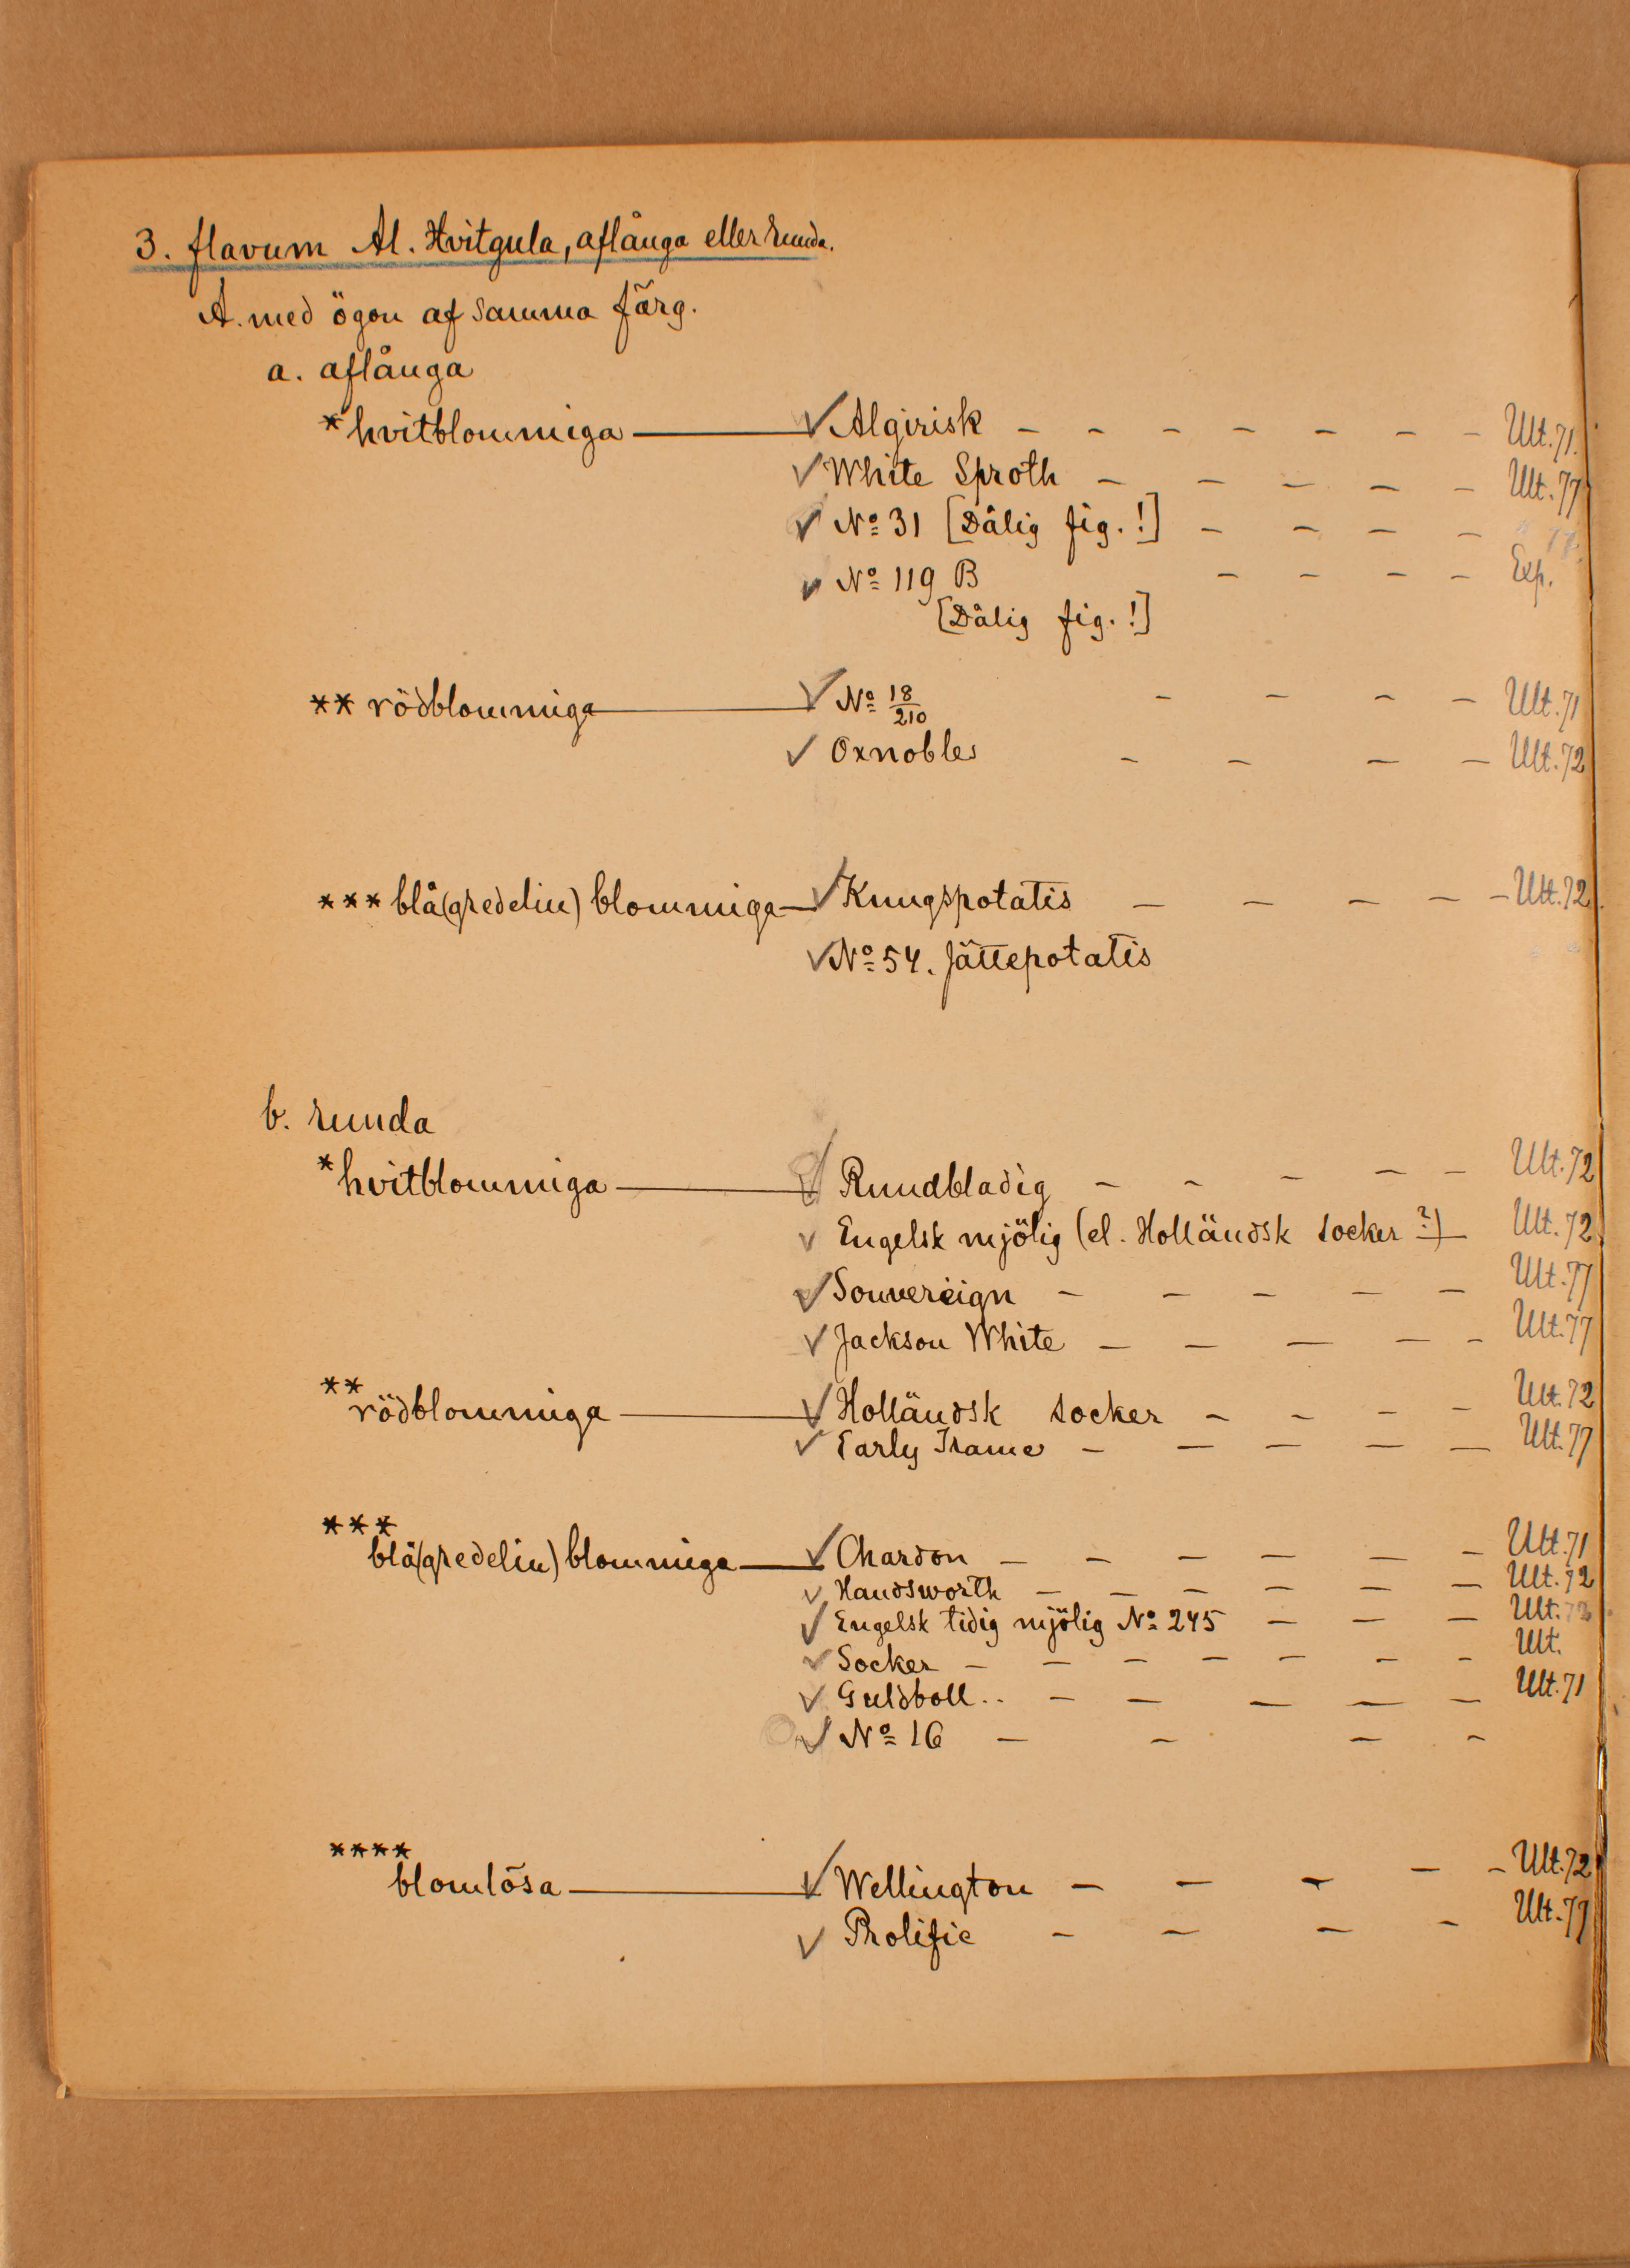 3. flavum Al. Hvitgula, aflånga eller runda.
A. med ögon af samma färg.
a. aflånga
* hvitblommiga — ✓ Algirisk - - - - - - - Ult. 71.
✓ White Sproth - - - - - Ult. 77
✓ Nº 31 [Dålig fig. !] - - - -
✓ Nº 119 B - - - - Exp.
[Dålig fig. !]
** rödblommiga — ✓ Nº 18/210 - - - - Ult. 71
✓ Oxnobles - - - - Ult. 72
*** blå(gredelin) blommiga — ✓ Kungspotatis - - - - - Ult. 72
✓ Nº 54. Jättepotatis
b. runda
* hvitblommiga — ✓ Rundbladig - - - - - Ult. 72
✓ Engelsk mjölig (el. Holländsk socker ?) - Ult. 72
✓ Souvereign - - - - - Ult. 77
✓ Jackson White - - - - - Ult. 77
** rödblommiga — ✓ Holländsk socker - - - - Ult. 72
✓ Early Frame - - - - - Ult. 77
*** blå(gredelin) blommiga — ✓ Chardon - - - - - - Ult. 71
✓ Handsworth - - - - - - Ult. 72
✓ Engelsk tidig mjölig Nº 245 - - - Ult.
✓ Socker - - - - - - - Ult.
✓ Guldboll.. - - - - - Ult. 71
✓ Nº 16 - - - -
**** blomlösa — ✓ Wellington - - - - - Ult. 72
✓ Prolific - - - - Ult. 77